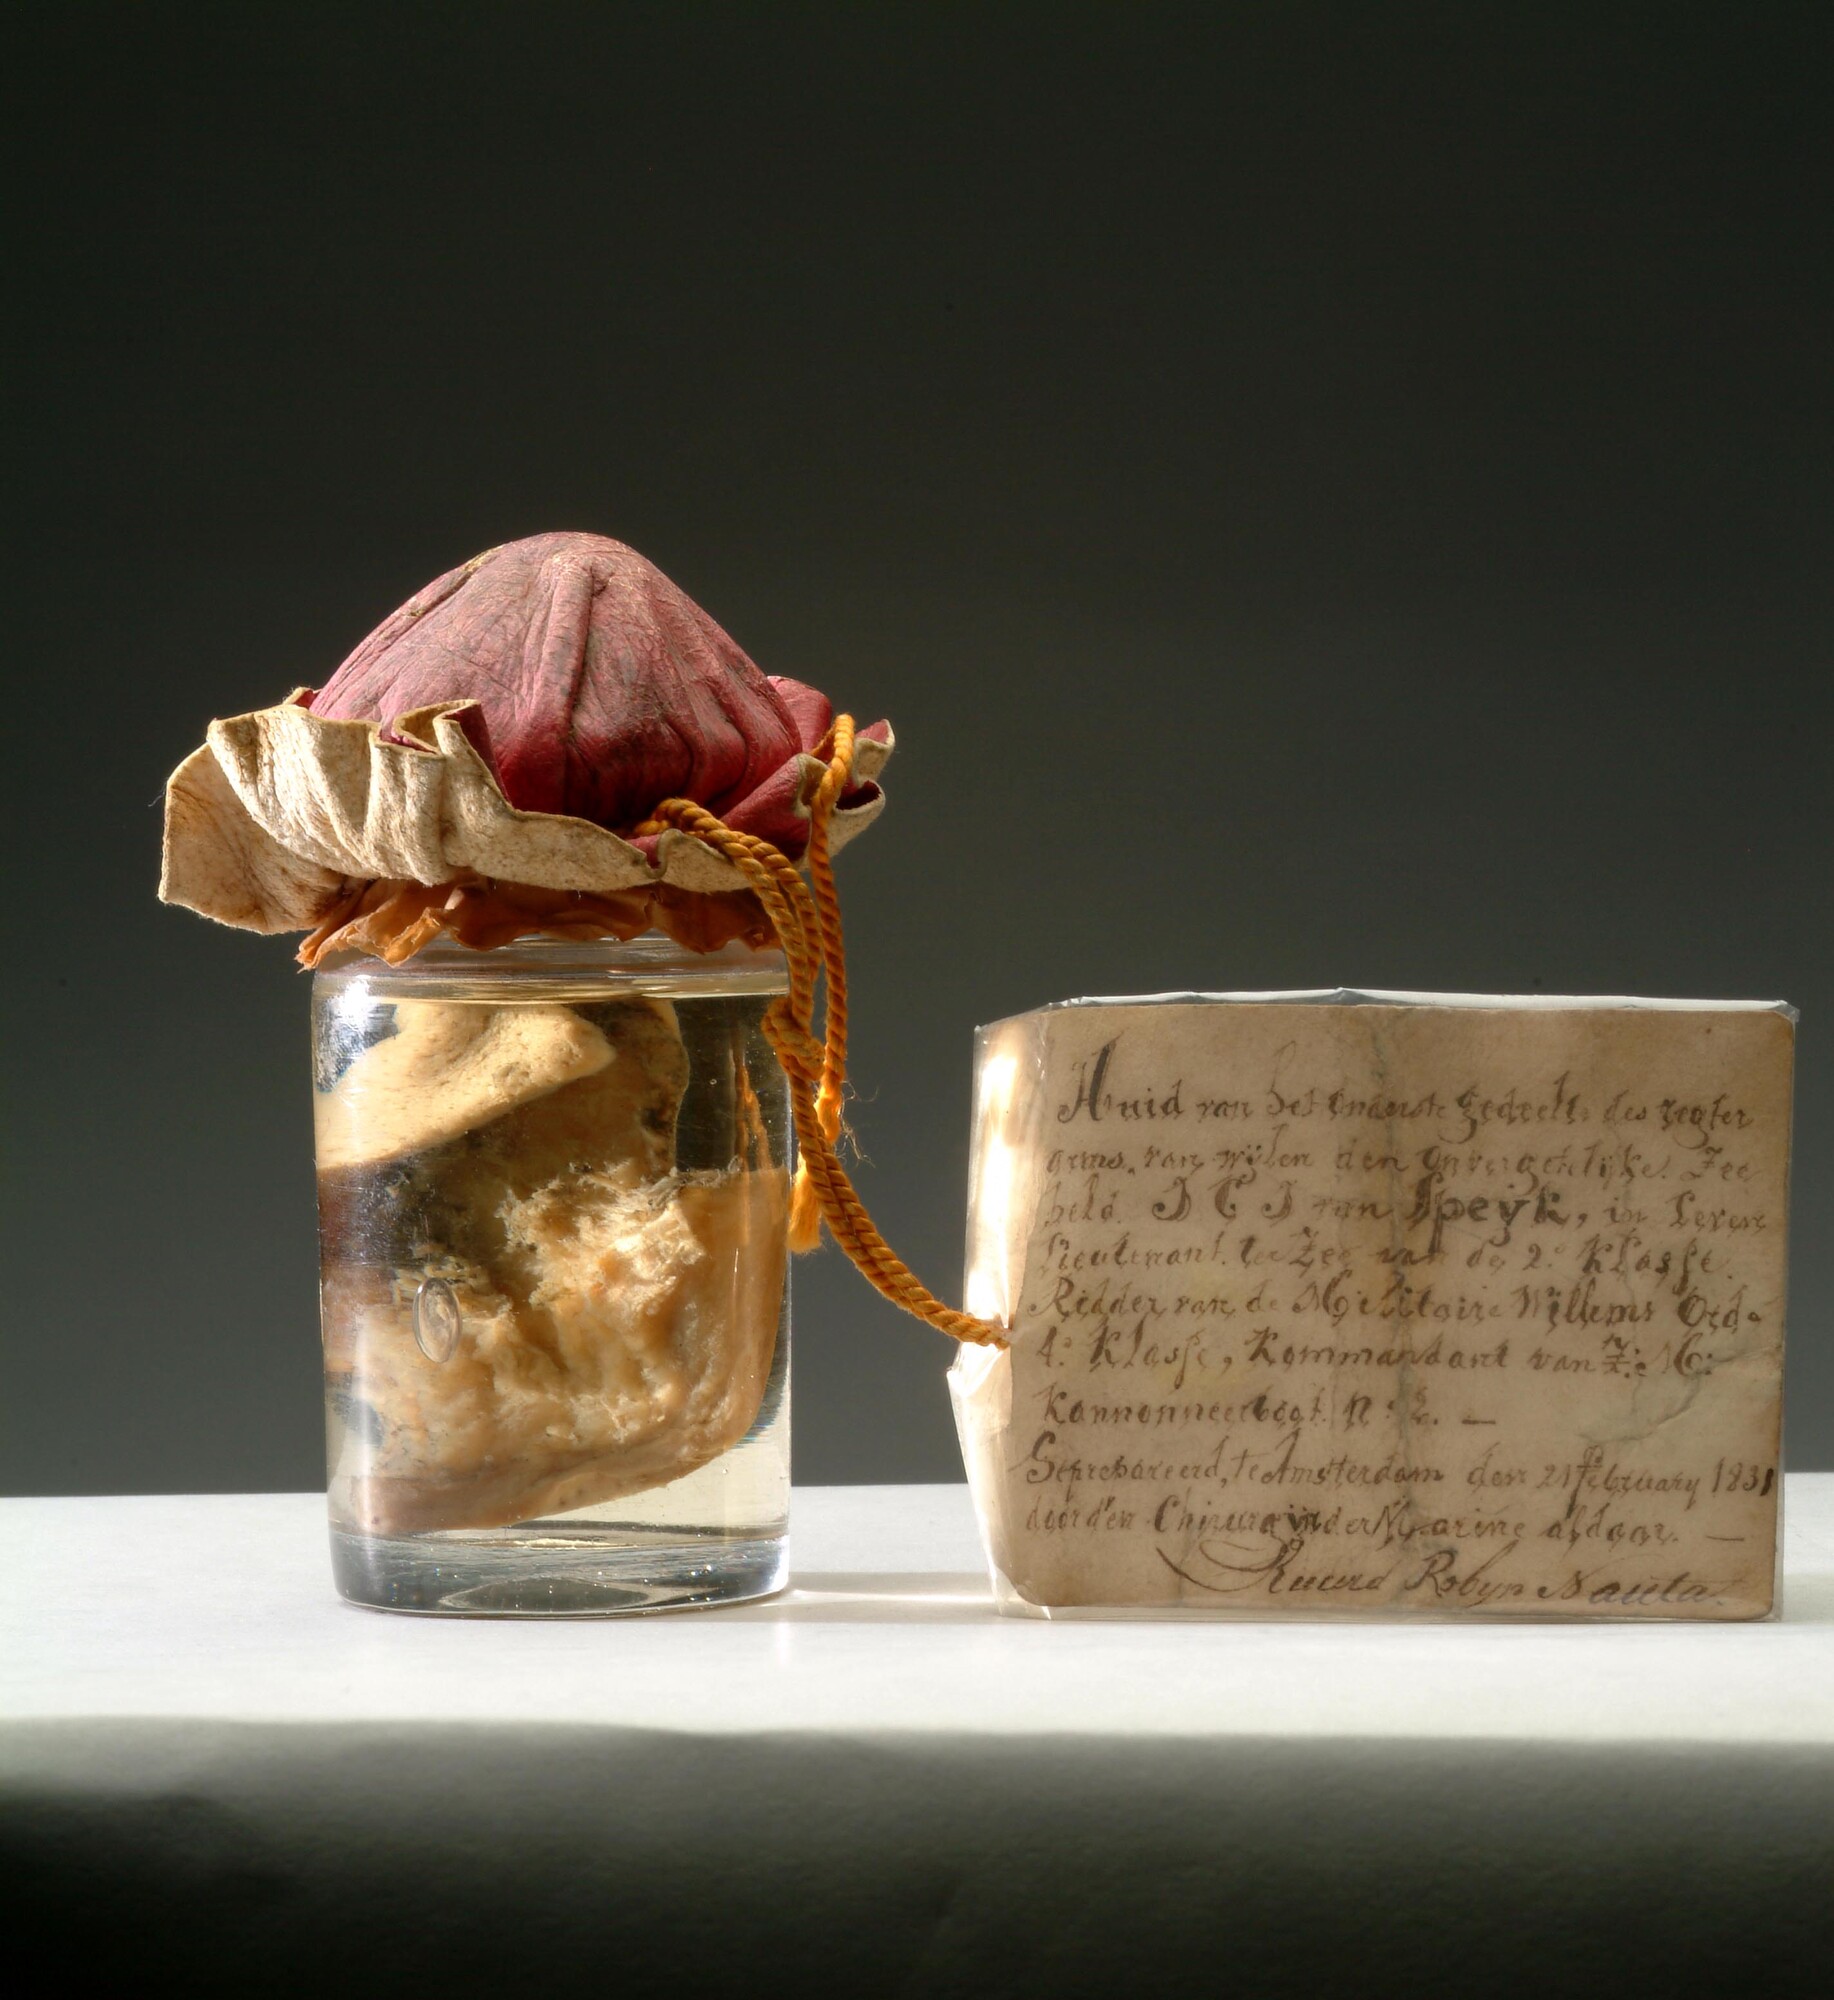 Huid van het onderste gedeelte des regter
arms, van wijlen den onvergetelijke Zee
held J C J van Speyk, in leven
Lieutenant ter Zee van de 2e Klasse
Ridder van de Militaire Willems Ord.
4e Klasse, Kommandant van Z: M:
Kannonneerboot N: 2. —
Geprepareerd, te Amsterdam den 21 February 1831
door den Chirurg in der Marine aldaar. —
Ruurd Robyn Nauta.